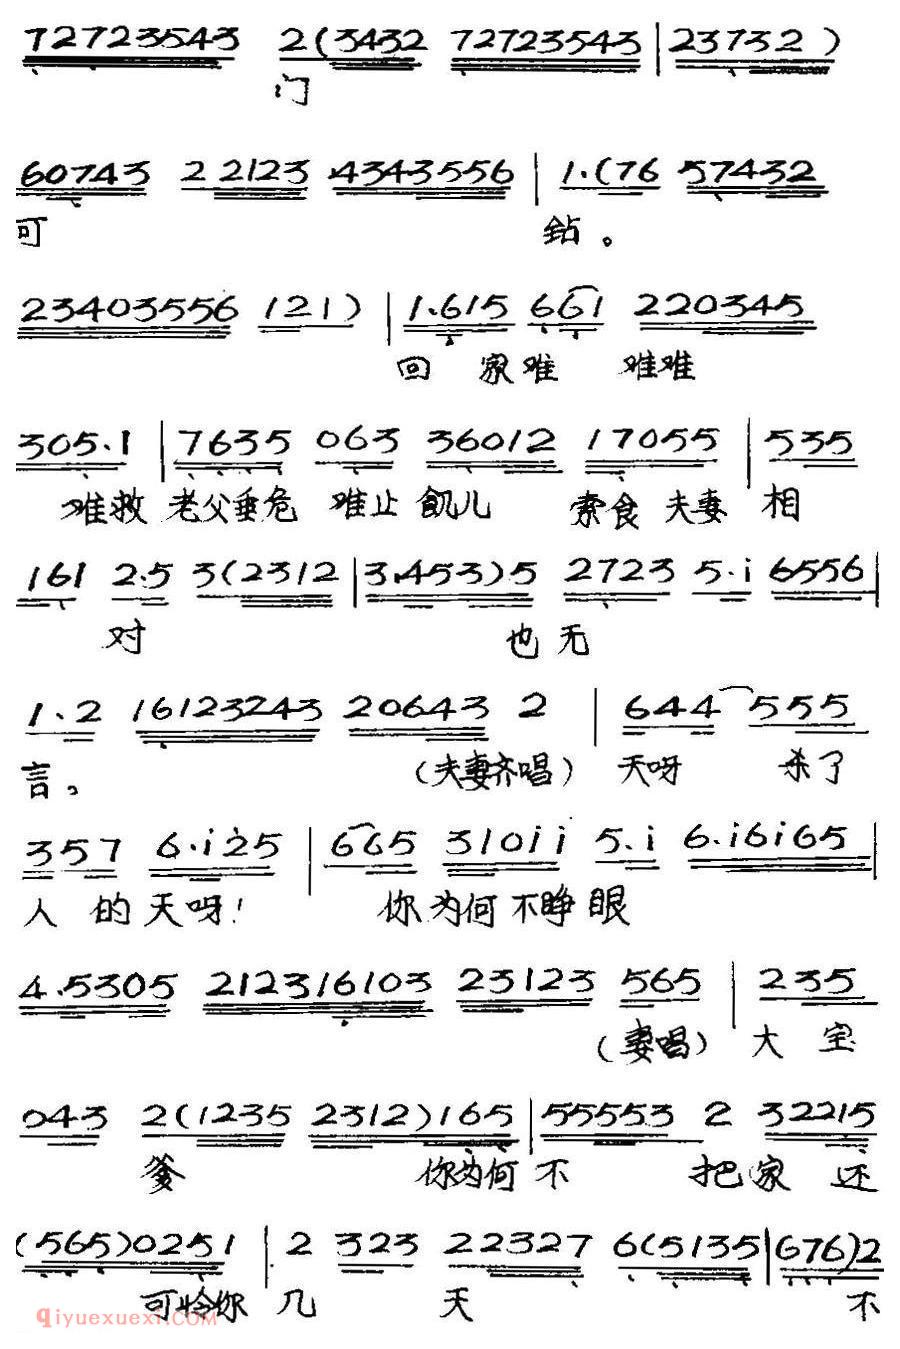 72723543 2(3432 72723543 | 23732 )
门
60743 2 2123 .4343556 | 1.(76 57432
可 钻。
23403556 121) | 1.615 661 220345
回 家难 难难
305.1 | 7635 063 36012 17055 | 535
难救 老父垂危 难止 飢儿 索食 夫妻 相
161 2.5 3(2312 | 3.453)5 2723 5.i 6556 |
对 也无
1.2 16123243 20643 2 | 644 555
言。 (夫妻齐唱) 天呀 杀了
357 6.i25 | 665 310ii 5.i 6.i6i65 |
人 的 天呀! 你为何不睁眼
4.5305 212316103 23123 565 | 235
(妻唱) 大 宝
043 2(1235 2312)165 | 55553 2 32215
爹 你为何 不 把家 还
(565)0251 | 2 323 22327 6(5135 | 676)2
可怜你 几 天 不
qiyuexuexi.COM